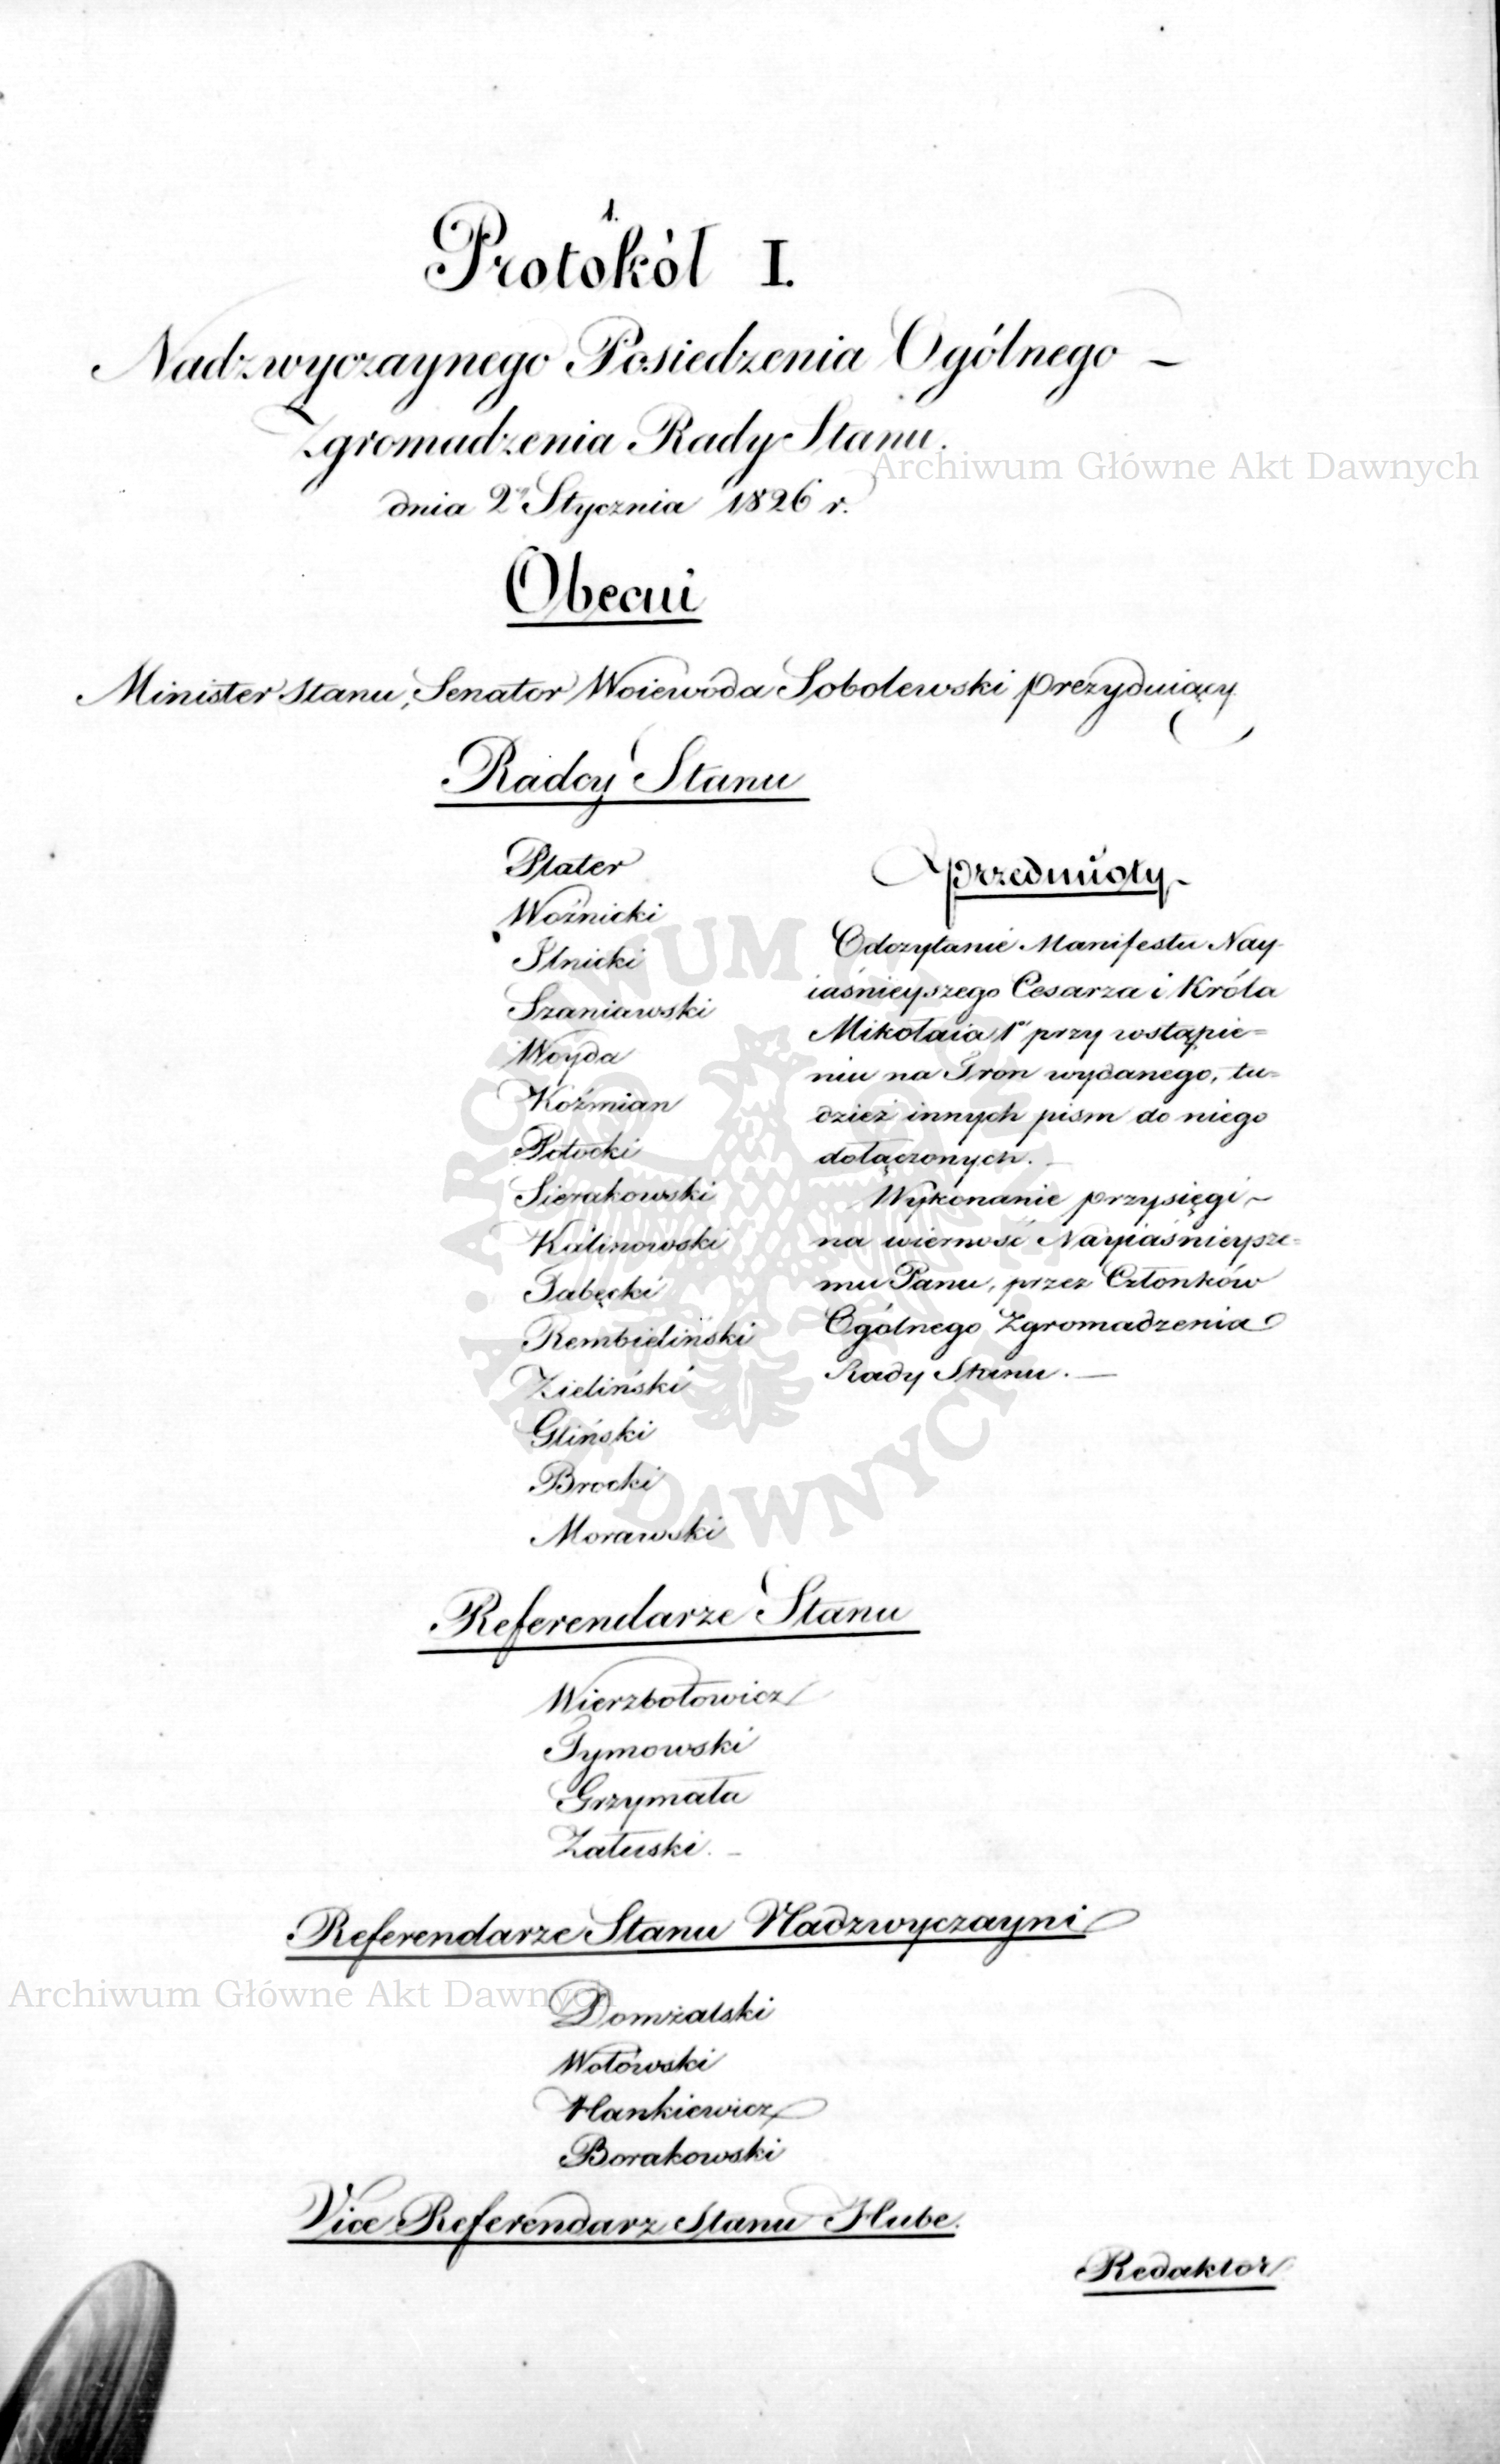 1.
Protokół I.
Nadzwyczaynego Posiedzenia Ogólnego –
Zgromadzenia Rady Stanu.
Archiwum Główne Akt Dawnych
dnia 2º Stycznia 1826 r.
Obecni
Minister Stanu, Senator Woiewoda Sobolewski prezyduiący
Radcy Stanu
Plater
Woźnicki
Ilnicki
Szaniawski
Woyda
Koźmian
Potocki
Sierakowski
Kalinowski
Tabęcki
Rembieliński
Zieliński
Gliński
Brocki
Morawski
przedmioty
Odczytanie Manifestu Nay-
iaśnieyszego Cesarza i Króla
Mikołaia 1º przy wstąpie=
niu na Tron wydanego, tu=
dzież innych pism do niego
dołączonych. –
Wykonanie przysięgi –
na wierność Nayiaśnieysze=
mu Panu, przez Członków
Ogólnego Zgromadzenia
Rady Stanu. –
ARCHIWUM GŁÓWNE AKT DAWNYCH
Referendarze Stanu
Wierzbołowicz
Tymowski
Grzymała
Załuski. –
Referendarze Stanu Nadzwyczayni
Archiwum Główne Akt Dawnych
Domżalski
Wołowski
Hankiewicz
Borakowski
Vice Referendarz Stanu Hube.
Redaktor